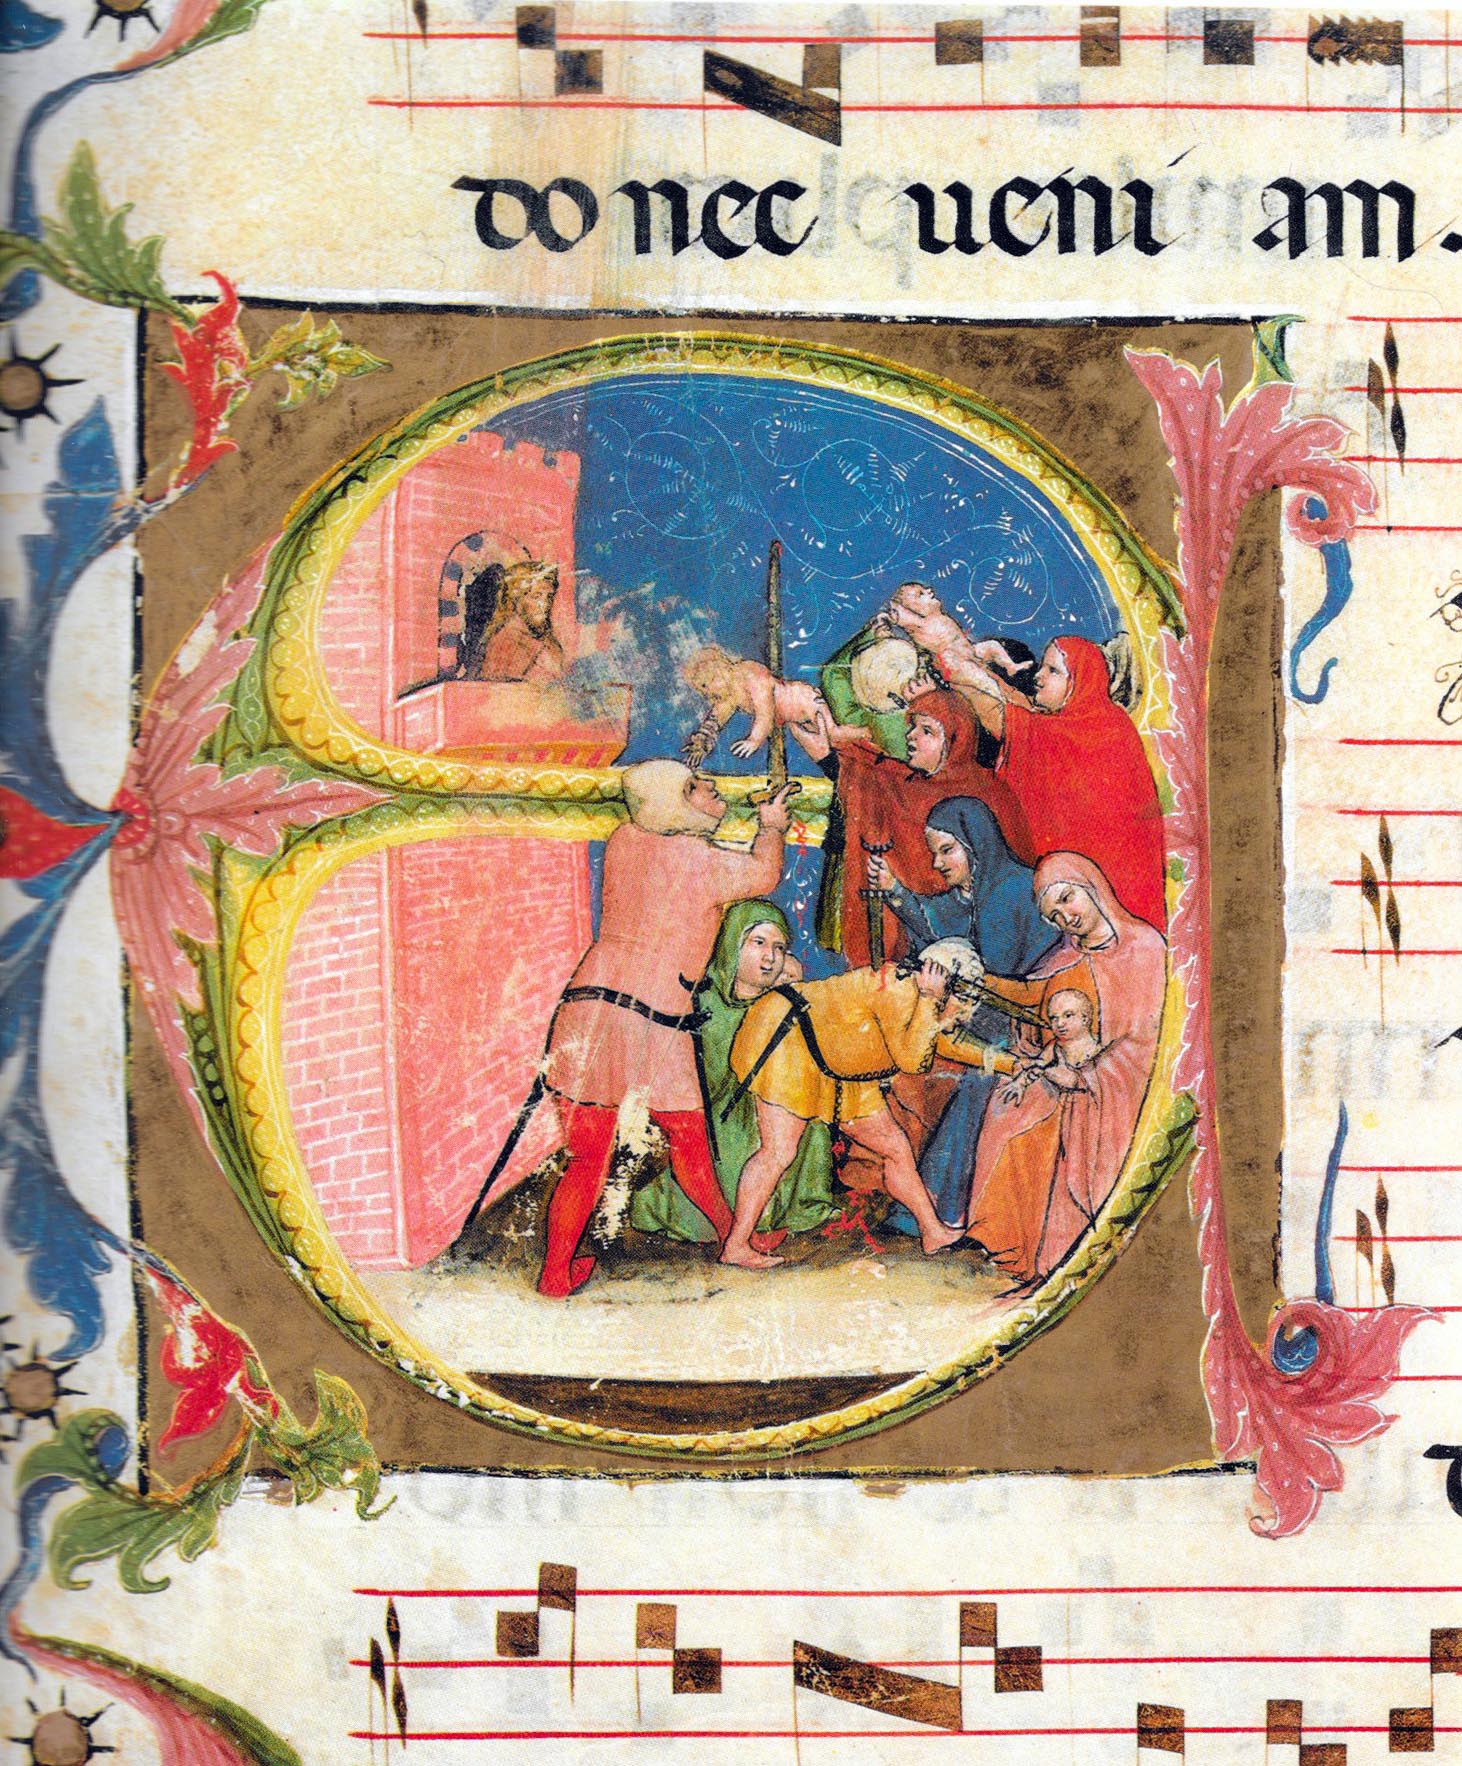 do nec ueni am.
E